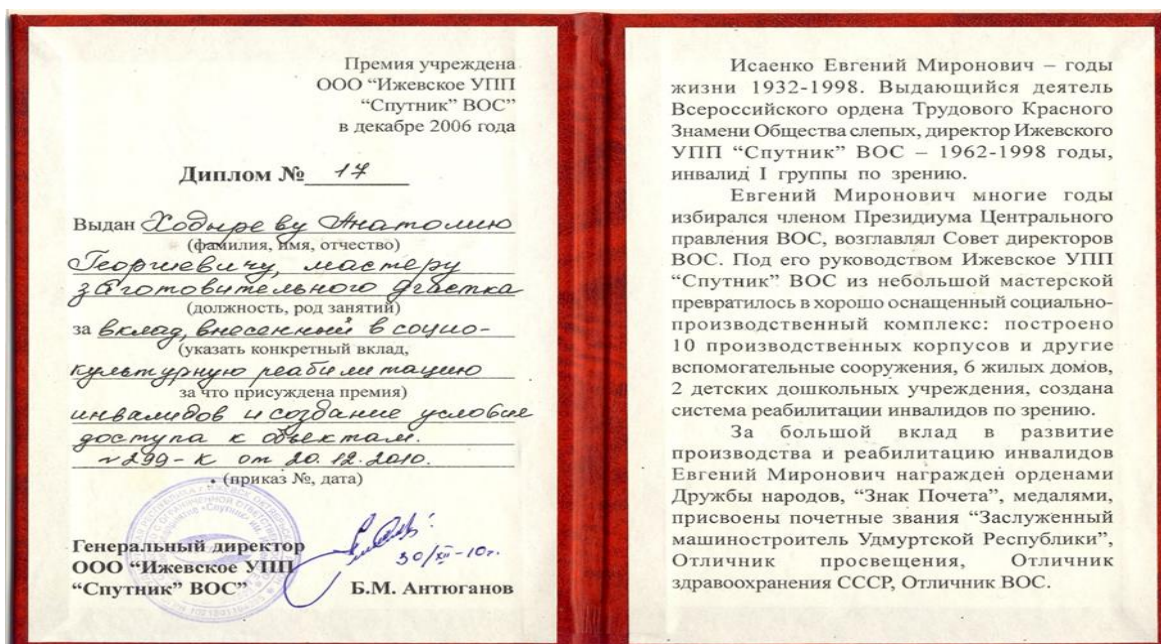 Премия учреждена
ООО “Ижевское УПП
“Спутник” ВОС”
в декабре 2006 года
Диплом № 17
Выдан Ходыреву Анатолию
(фамилия, имя, отчество)
Георгиевичу, мастеру
заготовительного участка
(должность, род занятий)
за вклад, внесенный в социо-
(указать конкретный вклад,
культурную реабилитацию
за что присуждена премия)
инвалидов и создание условие
доступа к объектам.
№299-к от 20.12.2010.
(приказ №, дата)
Генеральный директор
ООО “Ижевское УПП
“Спутник” ВОС”
30/XII-10г.
Б.М. Антюганов
Исаенко Евгений Миронович – годы
жизни 1932-1998. Выдающийся деятель
Всероссийского ордена Трудового Красного
Знамени Общества слепых, директор Ижевского
УПП “Спутник” ВОС – 1962-1998 годы,
инвалид I группы по зрению.
Евгений Миронович многие годы
избирался членом Президиума Центрального
правления ВОС, возглавлял Совет директоров
ВОС. Под его руководством Ижевское УПП
“Спутник” ВОС из небольшой мастерской
превратилось в хорошо оснащенный социально-
производственный комплекс: построено
10 производственных корпусов и другие
вспомогательные сооружения, 6 жилых домов,
2 детских дошкольных учреждения, создана
система реабилитации инвалидов по зрению.
За большой вклад в развитие
производства и реабилитацию инвалидов
Евгений Миронович награжден орденами
Дружбы народов, “Знак Почета”, медалями,
присвоены почетные звания “Заслуженный
машиностроитель Удмуртской Республики”,
Отличник просвещения, Отличник
здравоохранения СССР, Отличник ВОС.